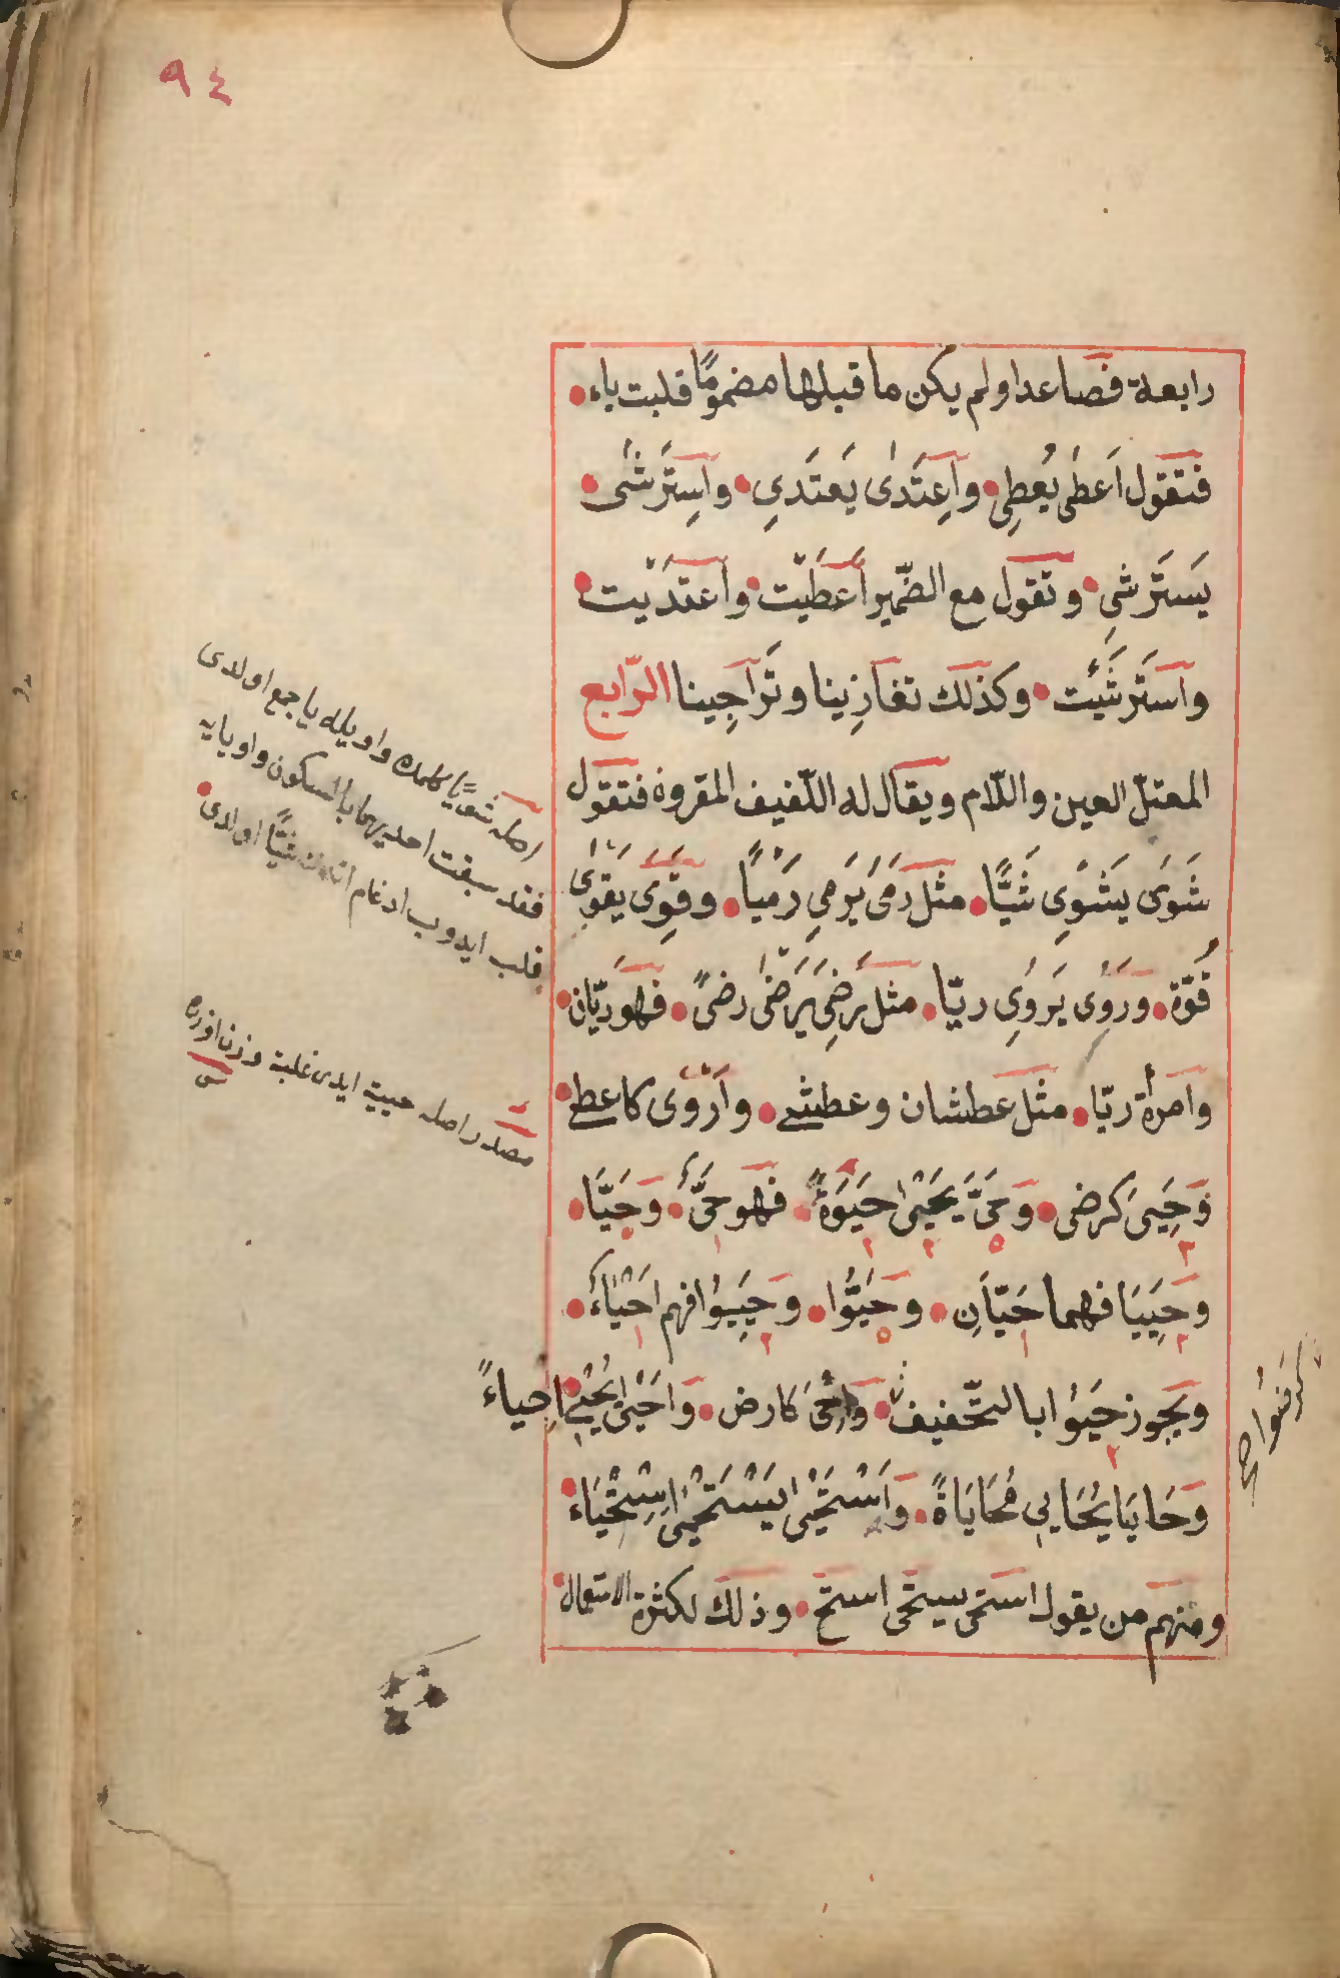 ٩٤
رابعة فصاعدا ولم يكن ما قبلها مضمومًا قلبت ياء
فتقول اَعطٰى يُعطِى وَاِعتَدٰى يَعتَدِي وَاسِتَرشٰى
يَستَرشِى وتقول مع الضّمير اَعطَيْت واعتدَيْت
واستَرشَيْت وكذلك تغازينا وتَراجِينا الرّابع
المعتلّ العين واللّام ويقال له اللّفيف المقرون فتقول
شَوَى يَشْوِى شَيًّا مثل رَمَىٰ يَرمِي رَمْياً وقَوِىَ يَقوىٰ
قُوّة وَرَوِىَ يَروَى ريّا مثل رَضِىَ يَرَضىٰ رضىً فهو رَيّان
وامرأة ريّا مثل عطشان وعطشى وأرْوى كاعطى
وَحَيِىَ كرضى وَحَىَّ يَحْيىٰ حَيٰوةً فهو حَىٌّ وَحَيَّا
وحَيِيَا فهما حَيّانِ وحَيُّوا وحَيِيُوا فهم اَحْيَاءٌ
ويجوز حَيُوا بالتّخفيف وَاَحْىَ كارض وَاَحْيىٰ يُحْيِي اِحياءً
وَحَايَا يُحَايِي مُحَايَاةً وَاسْتَحْيىٰ يَسْتَحْيِى اِسْتِحْيَاءً
ومنهم من يقول استحى يستحى استح وذلك لكثرة الاستعمال
اصله شَويًا كلمده واو يله يا جمع اولدى
فقد سبقت احديهما بالسكون واو يايه
قلب ايدوب ادغام شيًّا اولدى
مصدر اصله حيية ايدى غلبة وزن اوزره